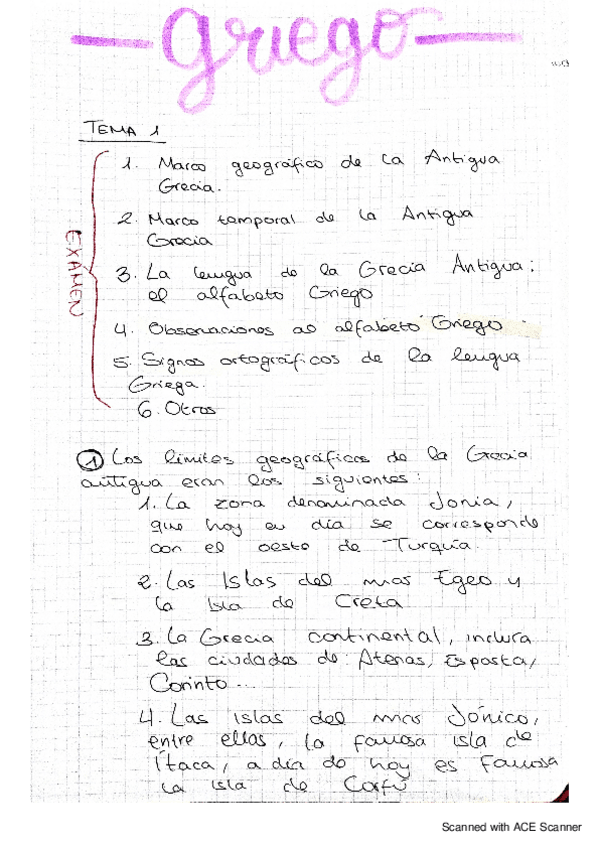 griego
TEMA 1
EXAMEN
1. Marco geográfico de la Antigua
Grecia.
2. Marco temporal de la Antigua
Grecia
3. La lengua de la Grecia Antigua:
el alfabeto Griego
4. Observaciones al alfabeto Griego
5. Signos ortográficos de la lengua
Griega.
6. Otros
① Los límites geográficos de la Grecia
antigua eran los siguientes:
1. La zona denominada Jonia,
que hoy en día se corresponde
con el oeste de Turquía.
2. Las Islas del mar Egeo y
la isla de Creta
3. La Grecia continental, incluía
las ciudades de: Atenas, Esparta,
Corinto...
4. Las islas del mar Jónico,
entre ellas, la famosa isla de
Ítaca, a día de hoy es famosa
la isla de Corfú
Scanned with ACE Scanner